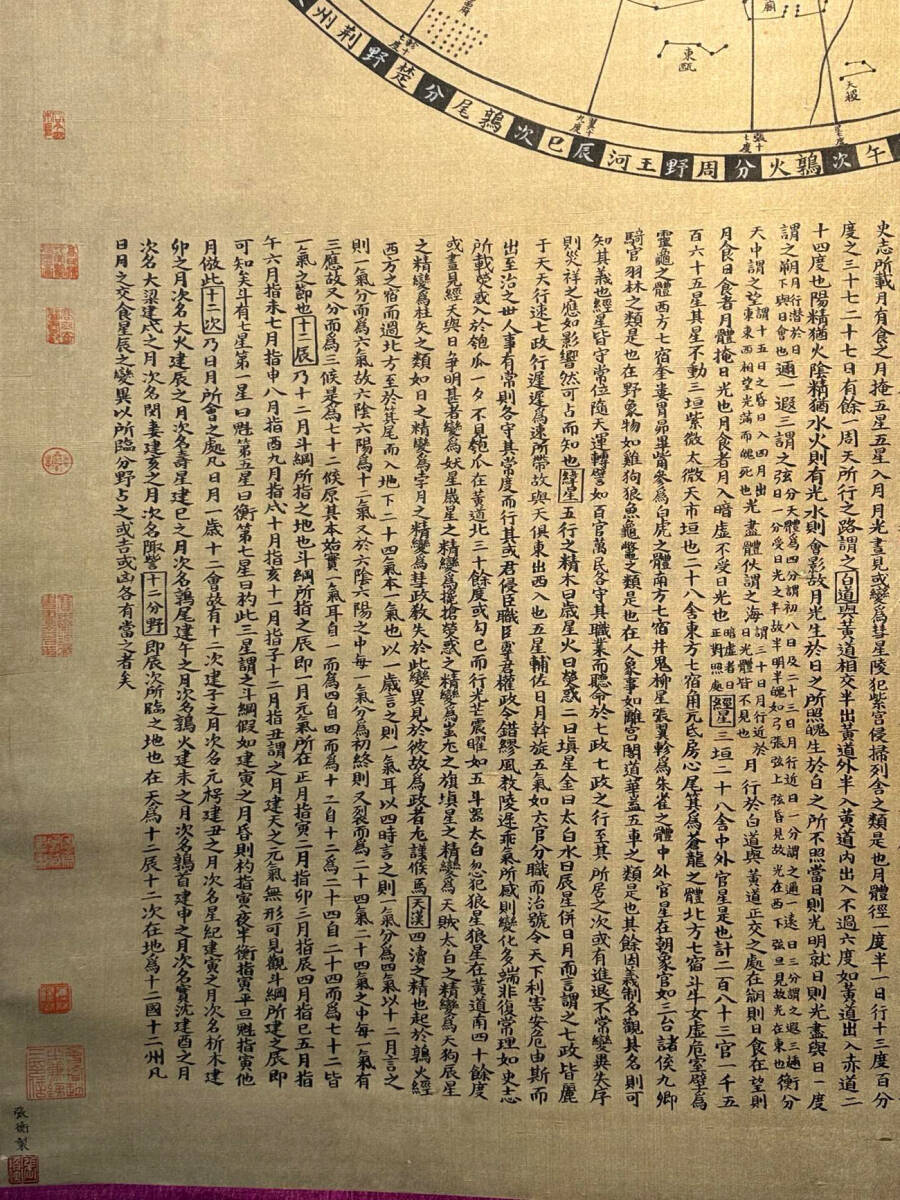 午次鶉火分周野王河辰巳次鶉尾分楚野荆州
廟
東甌
天稷
張十七度
翼十九度
史志所載月有食之月掩五星五星入月月光晝見或變爲彗星陵犯紫宮侵掃列舍之類是也月體徑一度半一日行十三度百分
度之三十七二十七日有餘一周天所行之路謂之白道與黃道相交半出黃道外半入黃道內出入不過六度如黃道出入赤道二
十四度也陽精猶火陰精猶水火則有光水則會影故月光生於日之所照魄生於白之所不照當日則光明就日則光盡與日一度
謂之朔月行潛於日下與日會也邇一遐三謂之弦分天體爲四分謂初八日及二十三日月行近日一分謂之邇一遠日三分謂之遐三邇日一分受日光之半故半明半魄如弓張弦上弦昏見故光在西下弦旦見故光在東也衡分
天中謂之望謂十五日之昏日入四月出東東西相望光蕩而魄死也光盡體伏謂之海謂三十日月行近於日光體皆不見也月行於白道與黃道正交之處在朔則日食在望則
月食日食者月體掩日光也月食者月入暗虛不受日光也暗虛者日正對照處經星三垣二十八舍中外官星是也計二百八十三官一千五
百六十五星其星不動三垣紫微太微天市垣也二十八舍東方七宿角亢氐房心尾箕爲蒼龍之體北方七宿斗牛女虛危室壁爲
靈龜之體西方七宿奎婁胃昴畢觜參爲白虎之體南方七宿井鬼柳星張翼軫爲朱雀之體中外官星在朝象官如三台諸侯九卿
騎官羽林之類是也在野象物如雞狗狼魚龜鼈之類是也在人象事如離宮閣道華蓋五車之類是也其餘因義制名觀其名則可
知其義也經星皆守常位隨天運轉譬如百官萬民各守其職業而聽命於七政七政之行至其所居之次或有進退不常變異失序
則災祥之應如影響然可占而知也緯星五行之精木曰歲星火曰熒惑土曰塡星金曰太白水曰辰星併日月而言謂之七政皆麗
于天天行速七政行遲遲爲速所帶故與天俱東出西入也五星輔佐日月斡旋五氣如六官分職而治號令天下利害安危由斯而
出至治之世人事有常則各守其常度而行其或君侵臣職臣專君權政令錯繆風教陵遲乖氣所感則變化多端非復常理如史志
所載熒惑入於匏瓜一夕不見匏瓜在黃道北三十餘度或勾巳而行光芒震曜如五斗噐太白忽犯狼星狼星在黃道南四十餘度
或晝見經天與日爭明甚者變爲妖星歲星之精變爲欃槍熒惑之精變爲蚩尤之旗塡星之精變爲天賊太白之精變爲天狗辰星
之精變爲枉矢之類如日之精變爲孛月之精變爲彗政教失於此變異見於彼故爲政者尤謹候焉天漢四瀆之精也起於鶉火經
西方之宿而過北方至於箕尾而入地下二十四氣本一氣也以一歲言之則一氣耳以四時言之則一氣分爲四氣以十二月言之
則一氣分而爲六氣故六陰六陽爲十二氣又於六陰六陽之中每一氣分爲初終則又裂而爲二十四氣二十四氣之中每一氣有
三應故又分而爲三候是爲七十二候原其本始實一氣耳自一而爲四自四而爲十二自十二爲二十四自二十四而爲七十二皆
一氣之節也十二辰乃十二月斗綱所指之地也斗綱所指之辰即一月元氣所在正月指寅二月指卯三月指辰四月指巳五月指
午六月指未七月指申八月指酉九月指戌十月指亥十一月指子十二月指丑謂之月建天之元氣無形可見觀斗綱所建之辰即
可知矣斗有七星第一星曰魁第五星曰衡第七星曰杓此三星謂之斗綱假如建寅之月昏則杓指寅夜半衡指寅平旦魁指寅他
月倣此十二次乃日月所會之處凡日月一歲十二會故有十二次建子之月次名元枵建丑之月次名星紀建寅之月次名析木建
卯之月次名大火建辰之月次名壽星建巳之月次名鶉尾建午之月次名鶉火建未之月次名鶉首建申之月次名實沈建酉之月
次名大梁建戌之月次名降婁建亥之月次名陬訾十二分野即辰次所臨之地也在天爲十二辰十二次在地爲十二國十二州凡
日月之交食星辰之變異以所臨分野占之或吉或凶各有當之者矣
張衡製